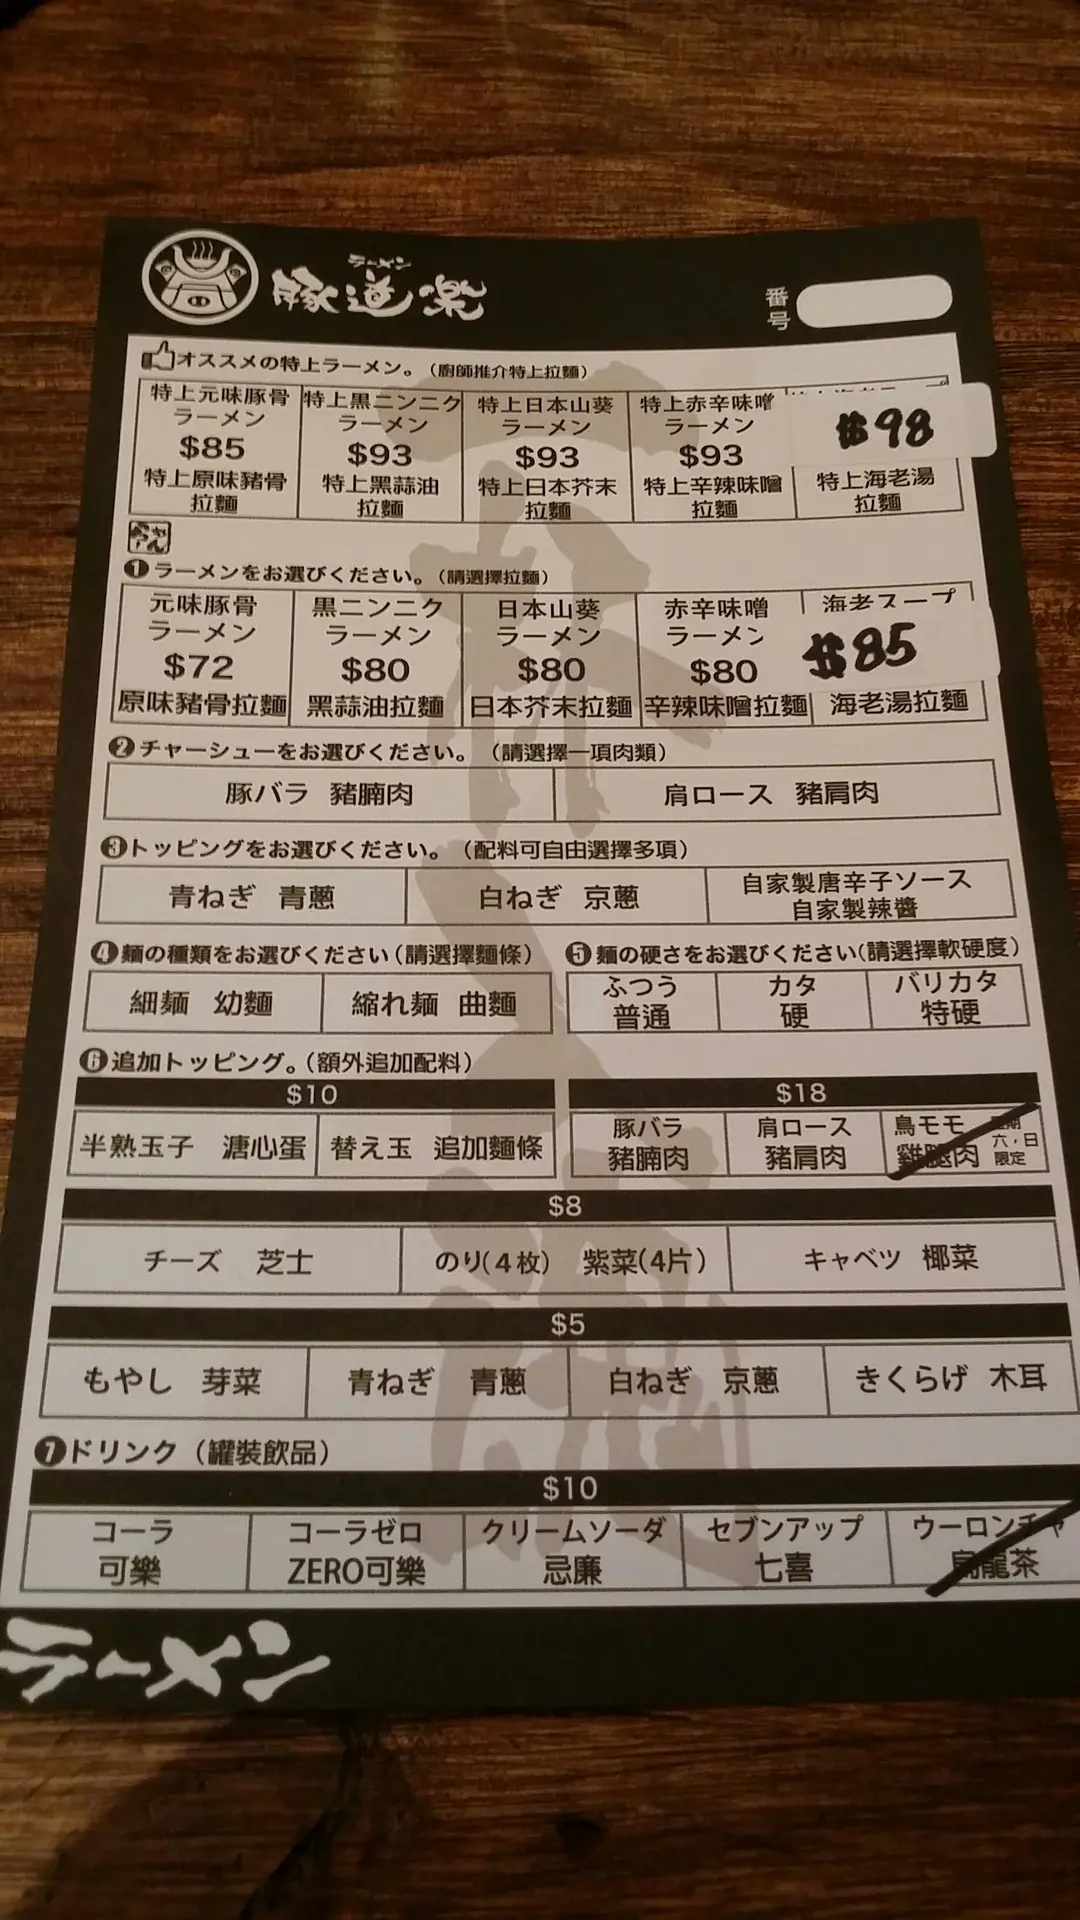 ラーメン
豚道楽
番号
オススメの特上ラーメン。(廚師推介特上拉麵)
特上元味豚骨
ラーメン
$85
特上原味豬骨
拉麵
特上黒ニンニク
ラーメン
$93
特上黑蒜油
拉麵
特上日本山葵
ラーメン
$93
特上日本芥末
拉麵
特上赤辛味噌
ラーメン
$93
特上辛辣味噌
拉麵
$98
特上海老湯
拉麵
❶ラーメンをお選びください。(請選擇拉麵)
元味豚骨
ラーメン
$72
原味豬骨拉麵
黒ニンニク
ラーメン
$80
黑蒜油拉麵
日本山葵
ラーメン
$80
日本芥末拉麵
赤辛味噌
ラーメン
$80
辛辣味噌拉麵
海老スープ
$85
海老湯拉麵
❷チャーシューをお選びください。(請選擇一項肉類)
豚バラ 豬腩肉
肩ロース 豬肩肉
❸トッピングをお選びください。(配料可自由選擇多項)
青ねぎ 青蔥
白ねぎ 京蔥
自家製唐辛子ソース
自家製辣醬
❹麺の種類をお選びください(請選擇麵條)
細麺 幼麵
縮れ麺 曲麵
❺麺の硬さをお選びください(請選擇軟硬度)
ふつう
普通
カタ
硬
バリカタ
特硬
❻追加トッピング。(額外追加配料)
$10
半熟玉子 溏心蛋
替え玉 追加麵條
$18
豚バラ
豬腩肉
肩ロース
豬肩肉
鳥モモ
雞腿肉
六，日
限定
$8
チーズ 芝士
のり(4枚) 紫菜(4片)
キャベツ 椰菜
$5
もやし 芽菜
青ねぎ 青蔥
白ねぎ 京蔥
きくらげ 木耳
❼ドリンク(罐裝飲品)
$10
コーラ
可樂
コーラゼロ
ZERO可樂
クリームソーダ
忌廉
セブンアップ
七喜
ウーロンチャ
烏龍茶
ラーメン